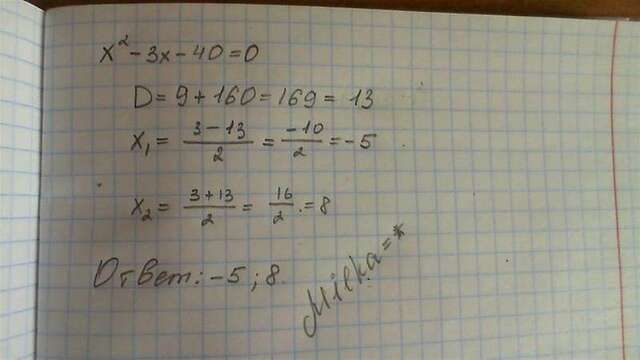 x² - 3x - 40 = 0
D = 9 + 160 = 169 = 13
x₁ = (3 - 13)/2 = -10/2 = -5
x₂ = (3 + 13)/2 = 16/2 = 8
Ответ: -5; 8.
Milka=*